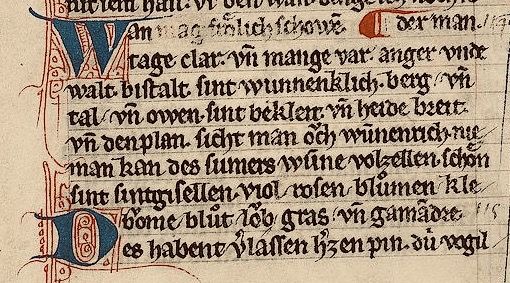 Wan mag frȯlich schowē. der man.
tage clar. vn̄ mange var. anger vnde
walt. bistalt. sint wunnenklich. berg. vn̄
tal. vn̄ owen. sint bekleit. vn̄ heide breit.
vn̄ den plan. sicht man ȯch wūnenrich. nie
man kan des sumers wūne volzellen. schȯn
sint sint gisellen. viol rosen blůmen kle
bȯme blůt lȯb gras vn̄ gamādre.
Des habent v̓lassen h̓zen pin. dú vogil